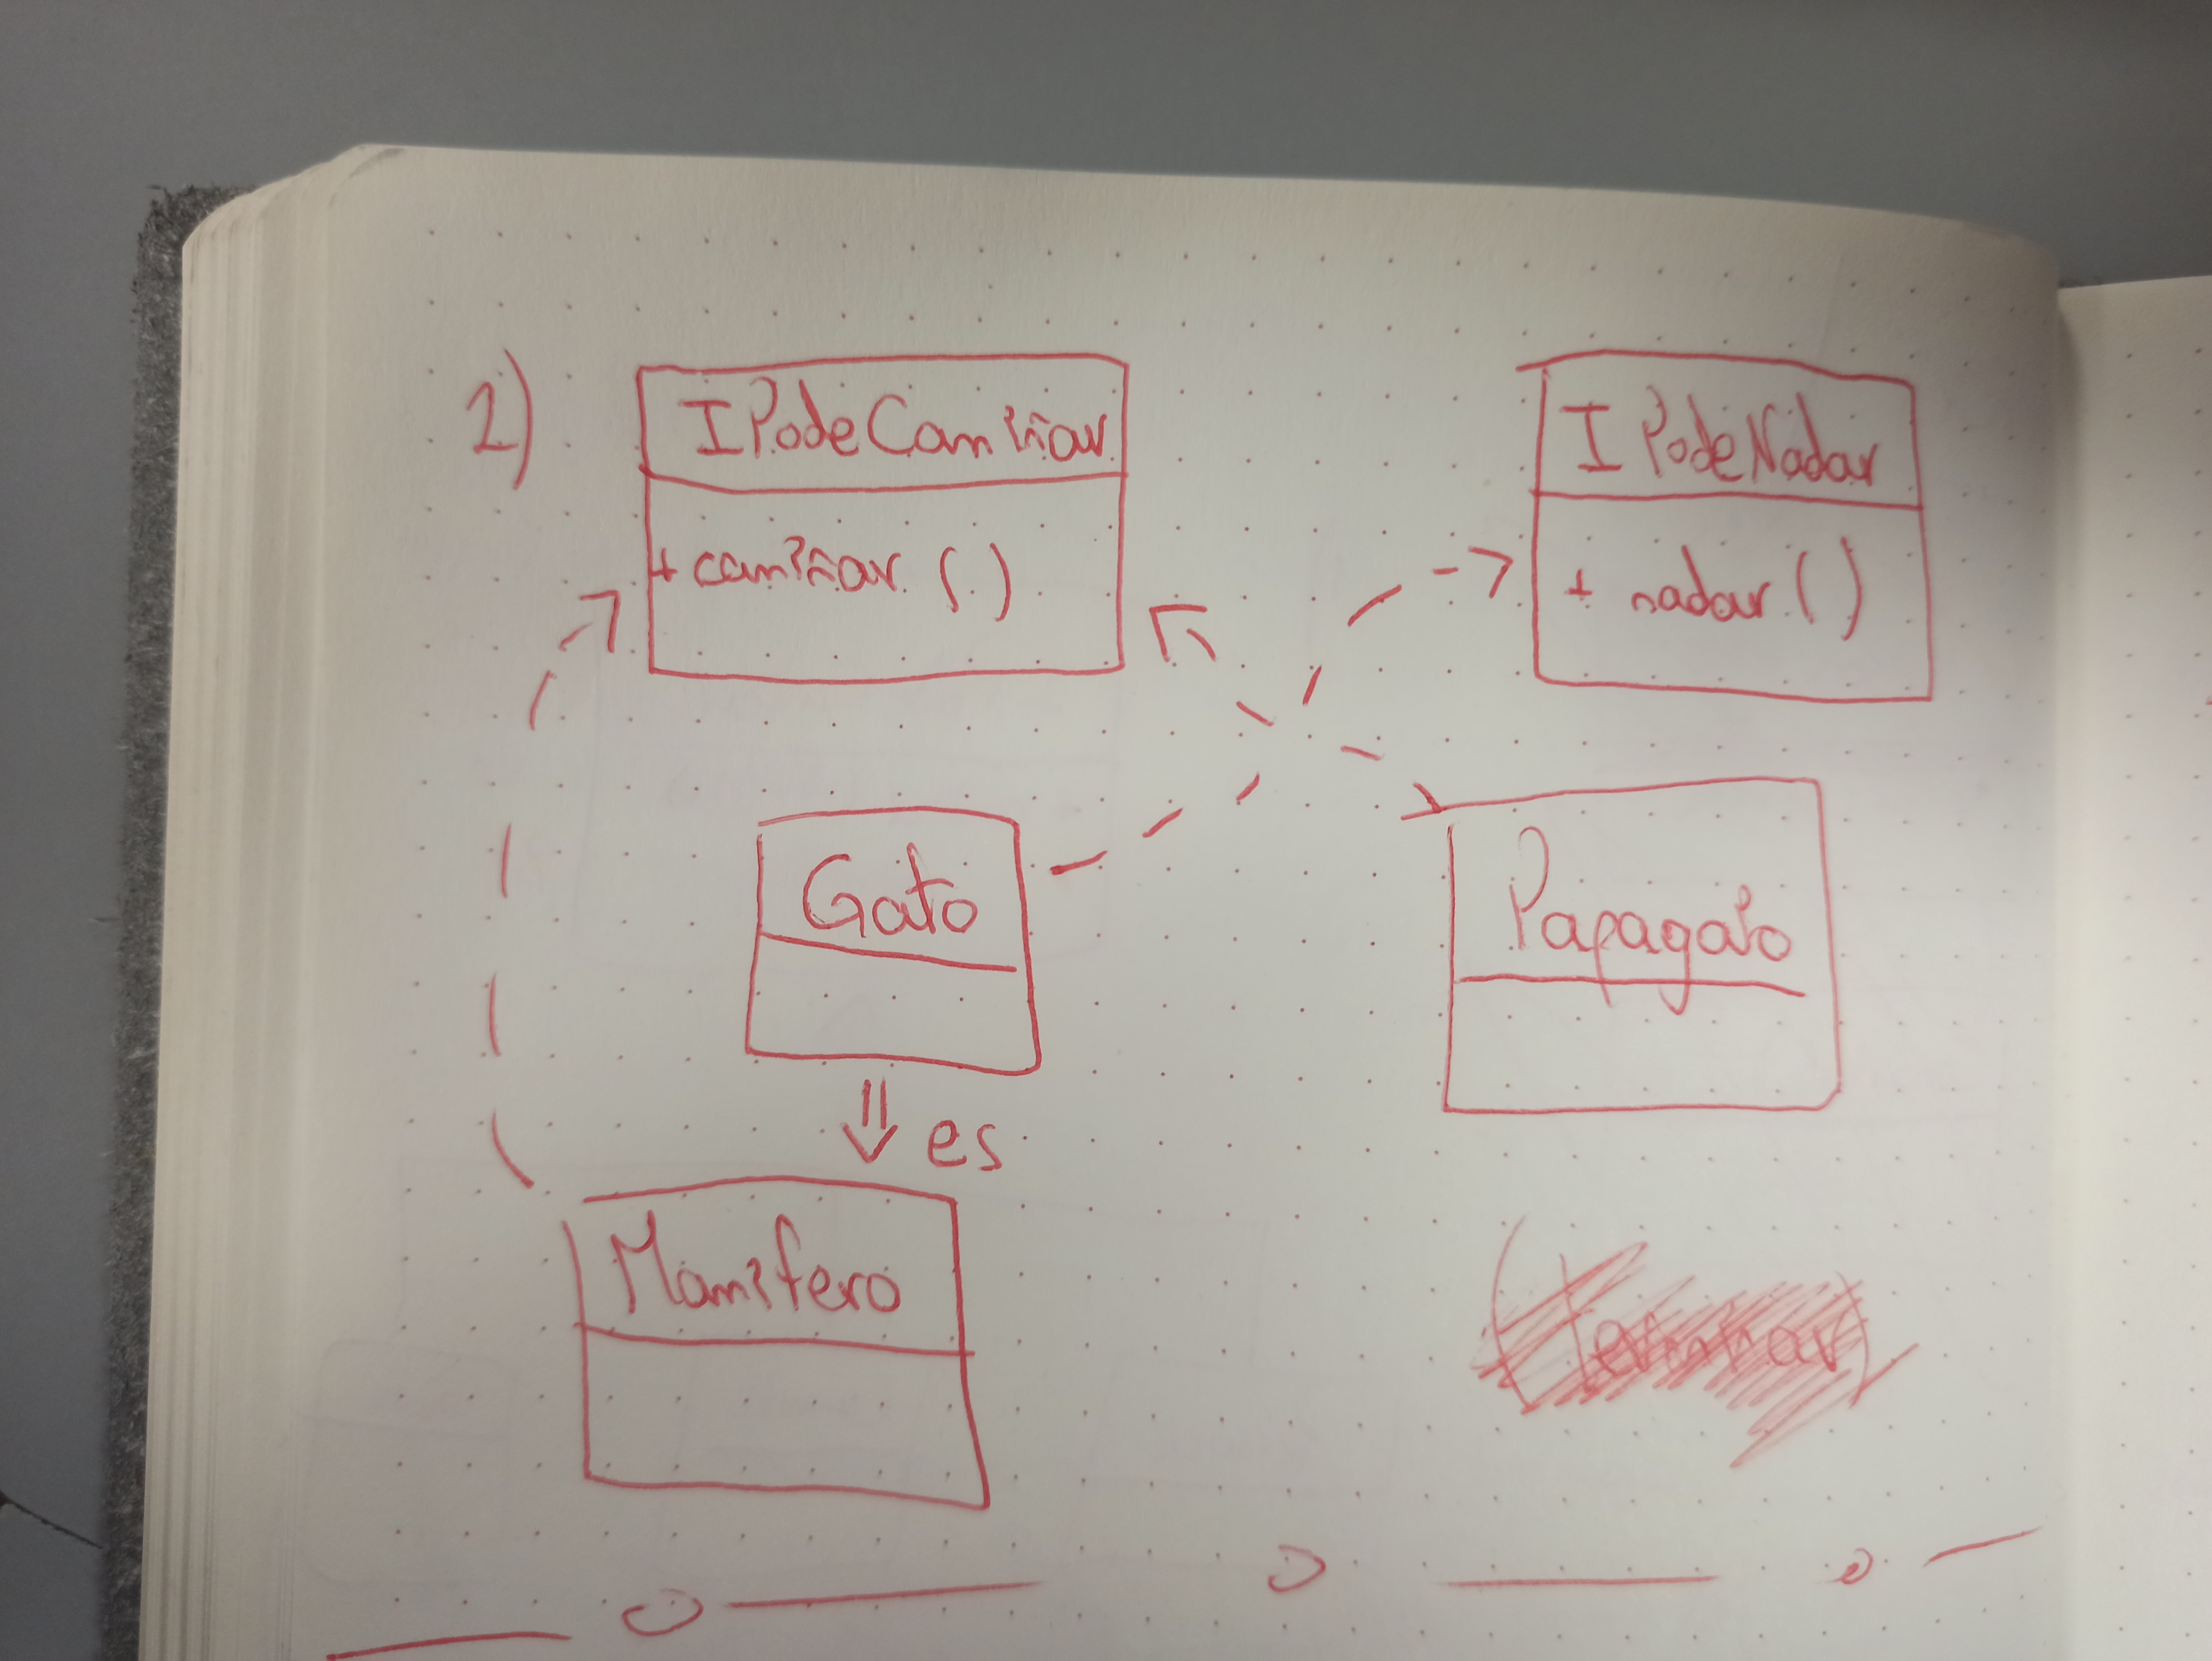 2)
IPodeCamiñar
+ camiñar ()
IPodeNadar
+ nadar ()
Gato
Papagaio
es
Mamífero